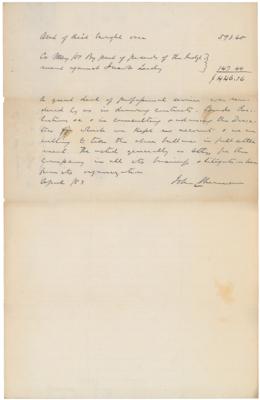 Amt of this brought over 593.60
Cr May 10 By part of proceeds of the Judg
ment against Frank Leidy 147.44
$446.16
A great deal of professional service was ren
dered by us in drawing contracts
&c in consulting & advising the Direc
tors for which we kept no account & we are
willing to take the above balance in full settle
ment. We acted generally as attys for the
Company in all its business & litigation since
its organization
April
John Sherman